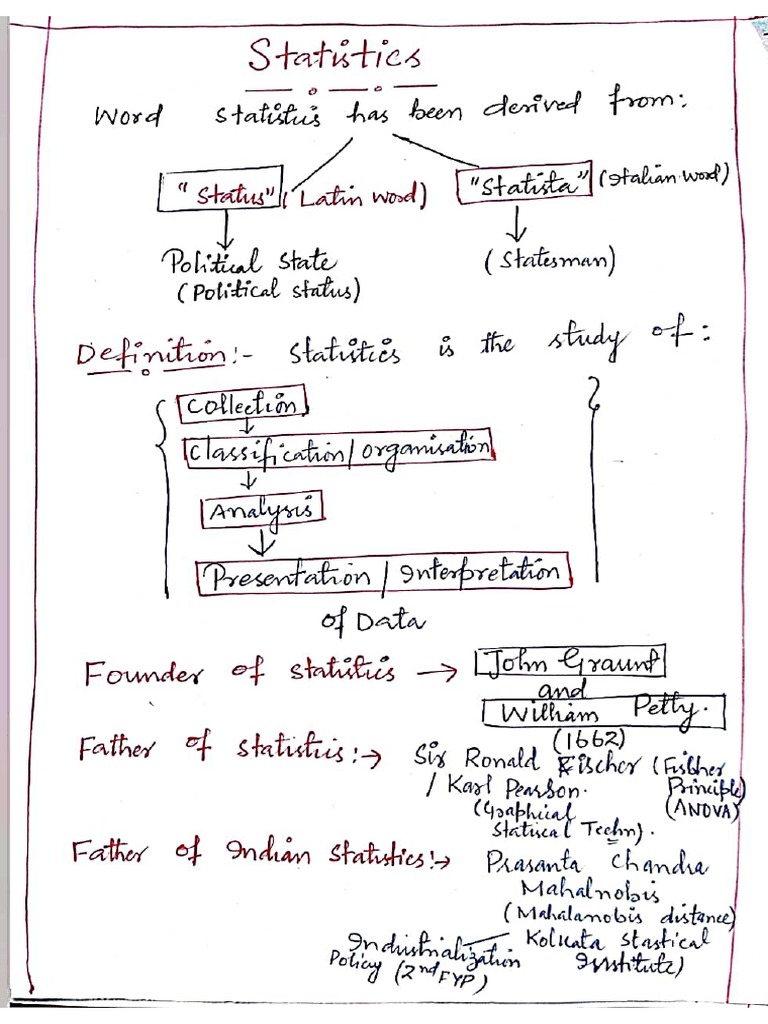 Statistics
Word Statistics has been derived from:
"Status" (Latin word) "Statista" (Italian word)
Political State (Statesman)
(Political status)
Definition:- Statistics is the study of:
Collection
Classification/organisation
Analysis
Presentation / Interpretation
of Data
Founder of Statistics → John Graunt
and
William Petty.
(1662)
Father of Statistics:→ Sir Ronald Fischer (Fisher
/ Karl Pearson. Principle)
(Graphical (ANOVA)
Statical Techn).
Father of Indian Statistics:→ Prasanta Chandra
Mahalnobis
(Mahalanobis distance)
Industrialization Kolkata Stastical
Policy (2nd FYP) Institute)